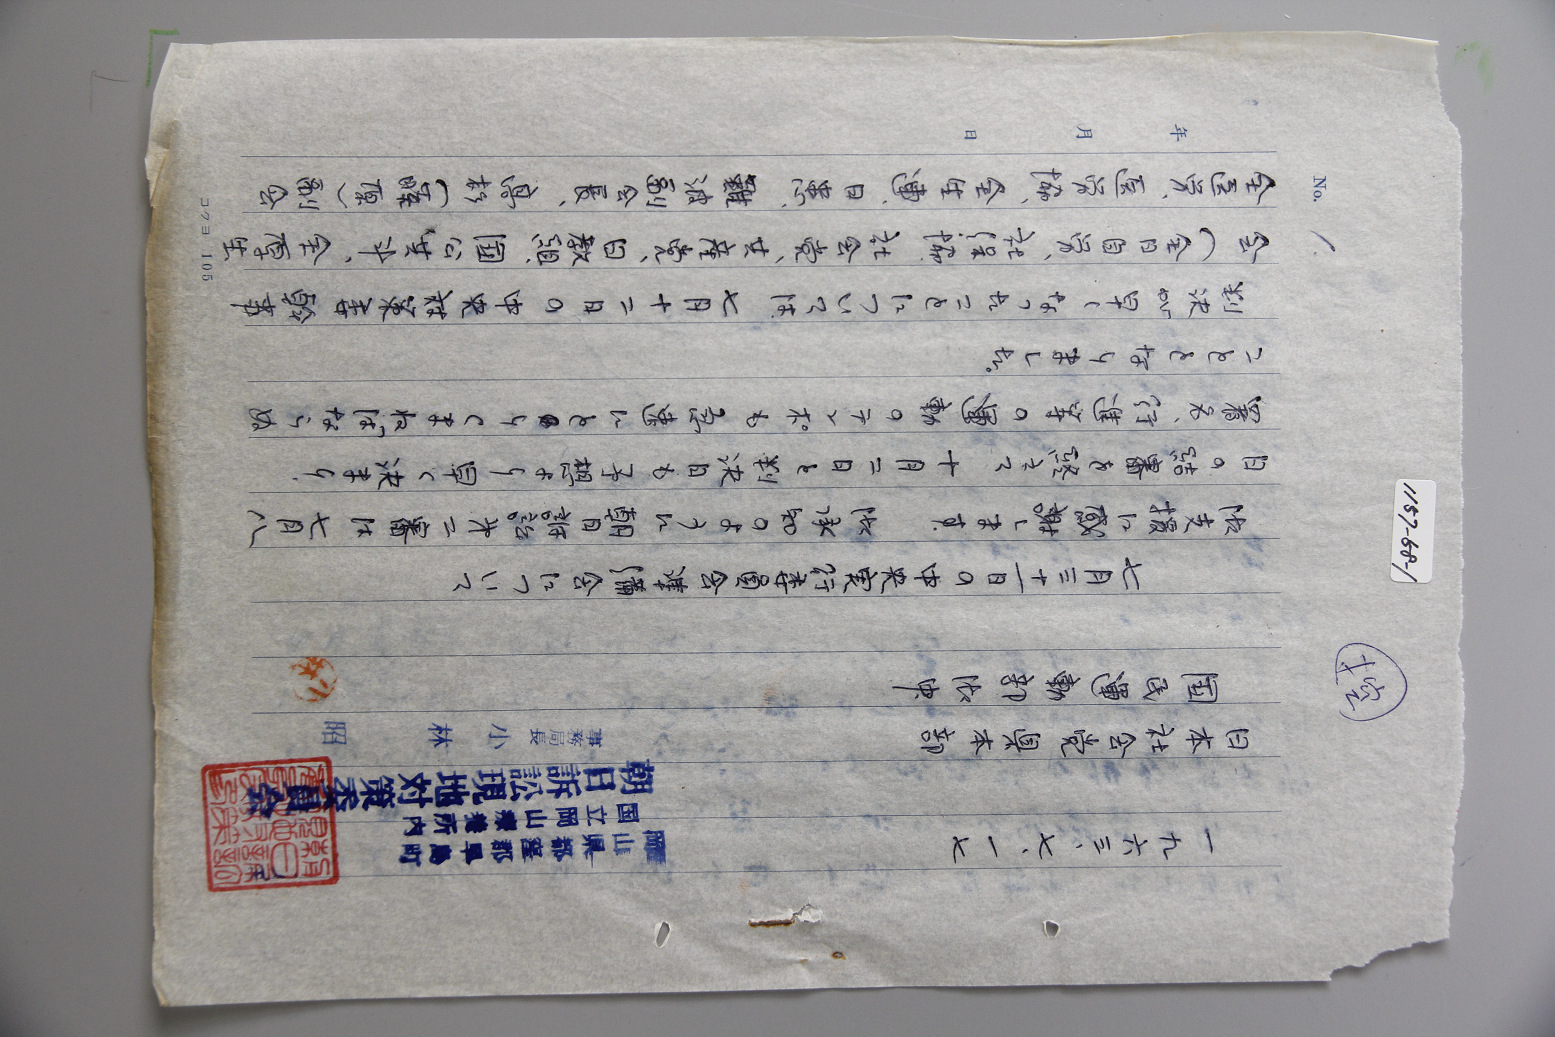 1157-68-1
控
No. 1.
年 月 日
一九六三、七、一七
岡山県都窪郡早島町
国立岡山療養所内
朝日訴訟現地対策委員会
事務局長 小林 昭
日本社会党県本部
国民運動部 御中
七月三十一日の中央実行委員会準備会について
御支援に感謝します. 御承知のように朝日訴訟才二審は七月八
日の結審を終えて 十月二日と判決日も予想より早く決まり.
署名、行進等の運動のテンポも急速にとりくまねばならぬ
こととなりました。
判決が早くなったことについては. 七月十二日の中央対策委幹事
会(全日自労、社保協、社会党、共産党、日教組、国公共斗、全厚生
全医労、医労協、全生連、日患、難波副会長、 副会
コクヨ 105